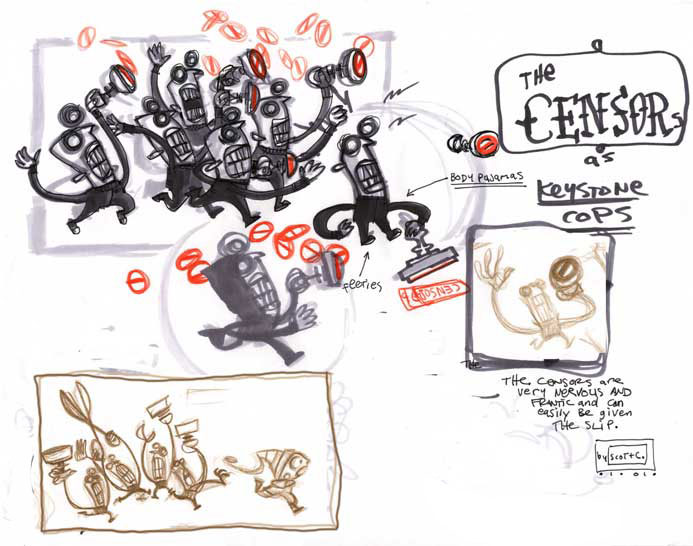 THE
CENSORS
as
KEYSTONE
COPS
BODY PAJAMAS
feeties
CENSORED
THE
THE CENSORS are
very NERVOUS AND
FRANTIC and can
easily be given
THE SLIP.
by SCOTT C.